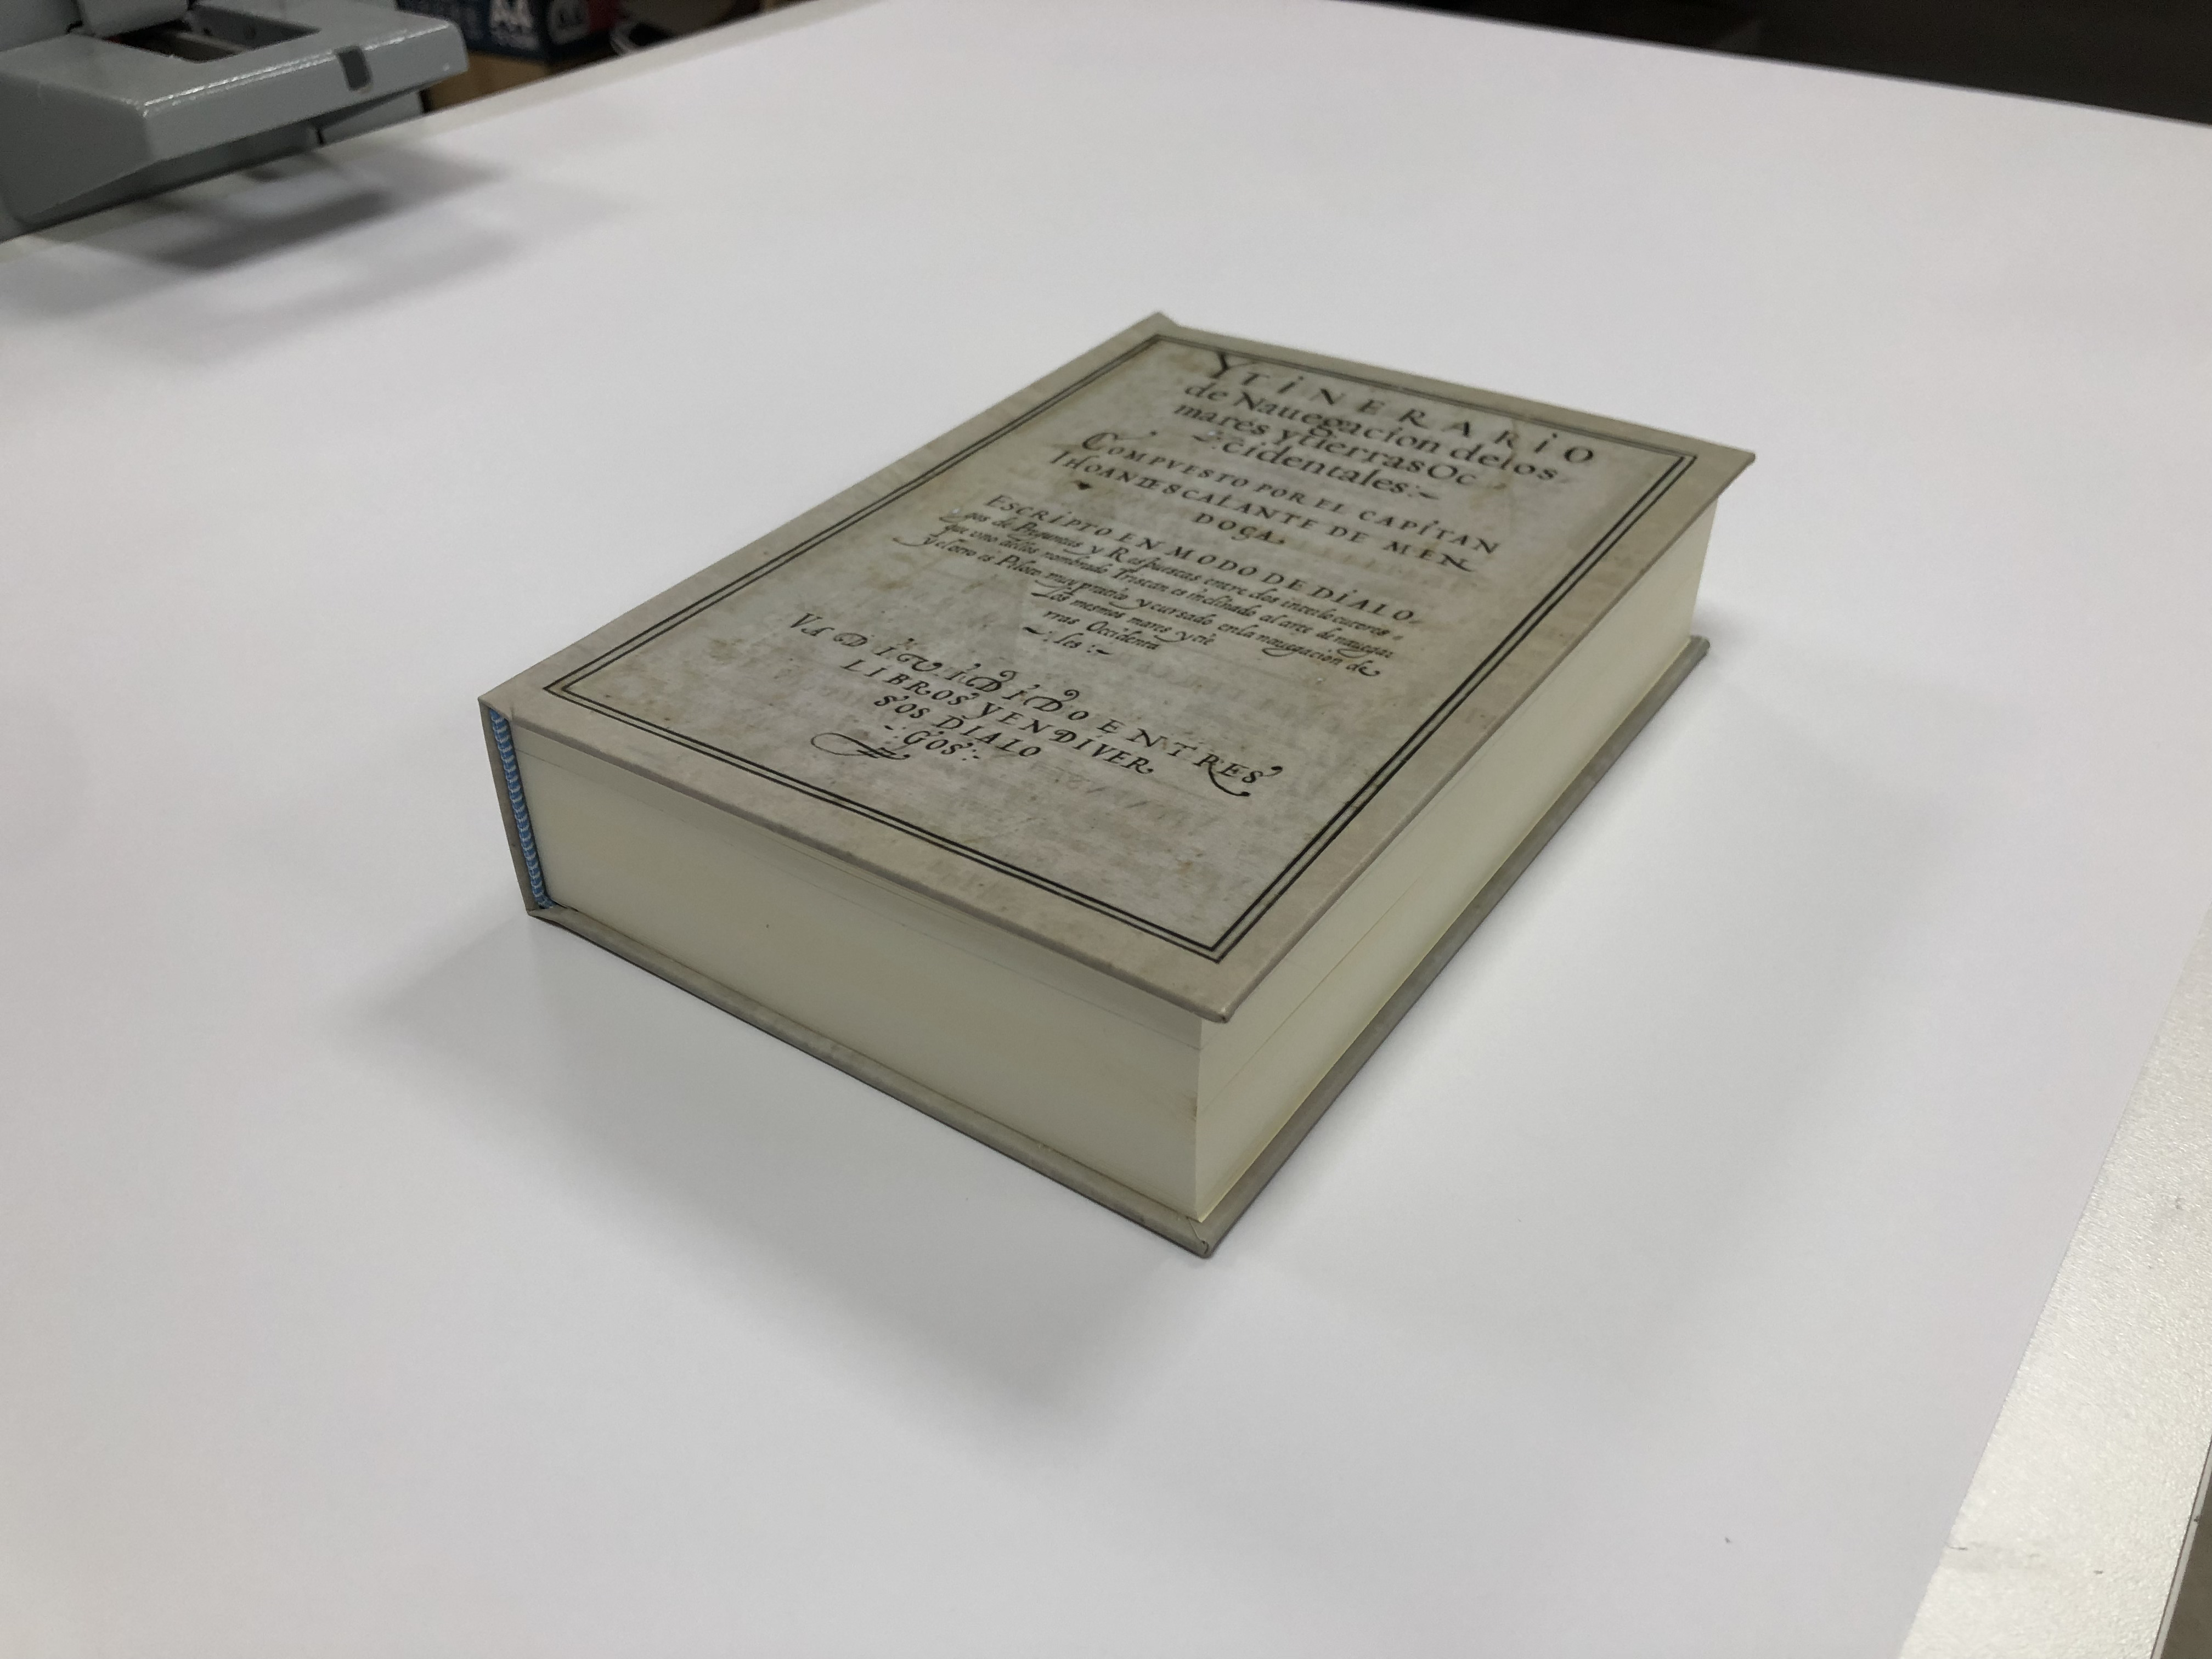 A4
YTiNERARiO
de Nauegacion delos
mares ytierras Oc
cidentales:~
COMPVESTO POR EL CAPíTAN
IHOAN DESCALANTE DE MEN
DOÇA.
ESCRiPTO EN MODO DE DiALO.
gos de Preguntas y Respuestas entre dos interlocutores
que uno dellos nombrado Tristan es inclinado al arte de nauegar
y el otro es Piloto muy pratico y cursado en la nauegacion de
los mesmos mares y tie
rras Occidenta
les :~
VA DiViDiDO EN TRES
LIBROS Y EN DIVER
SOS DIALO
GOS:-